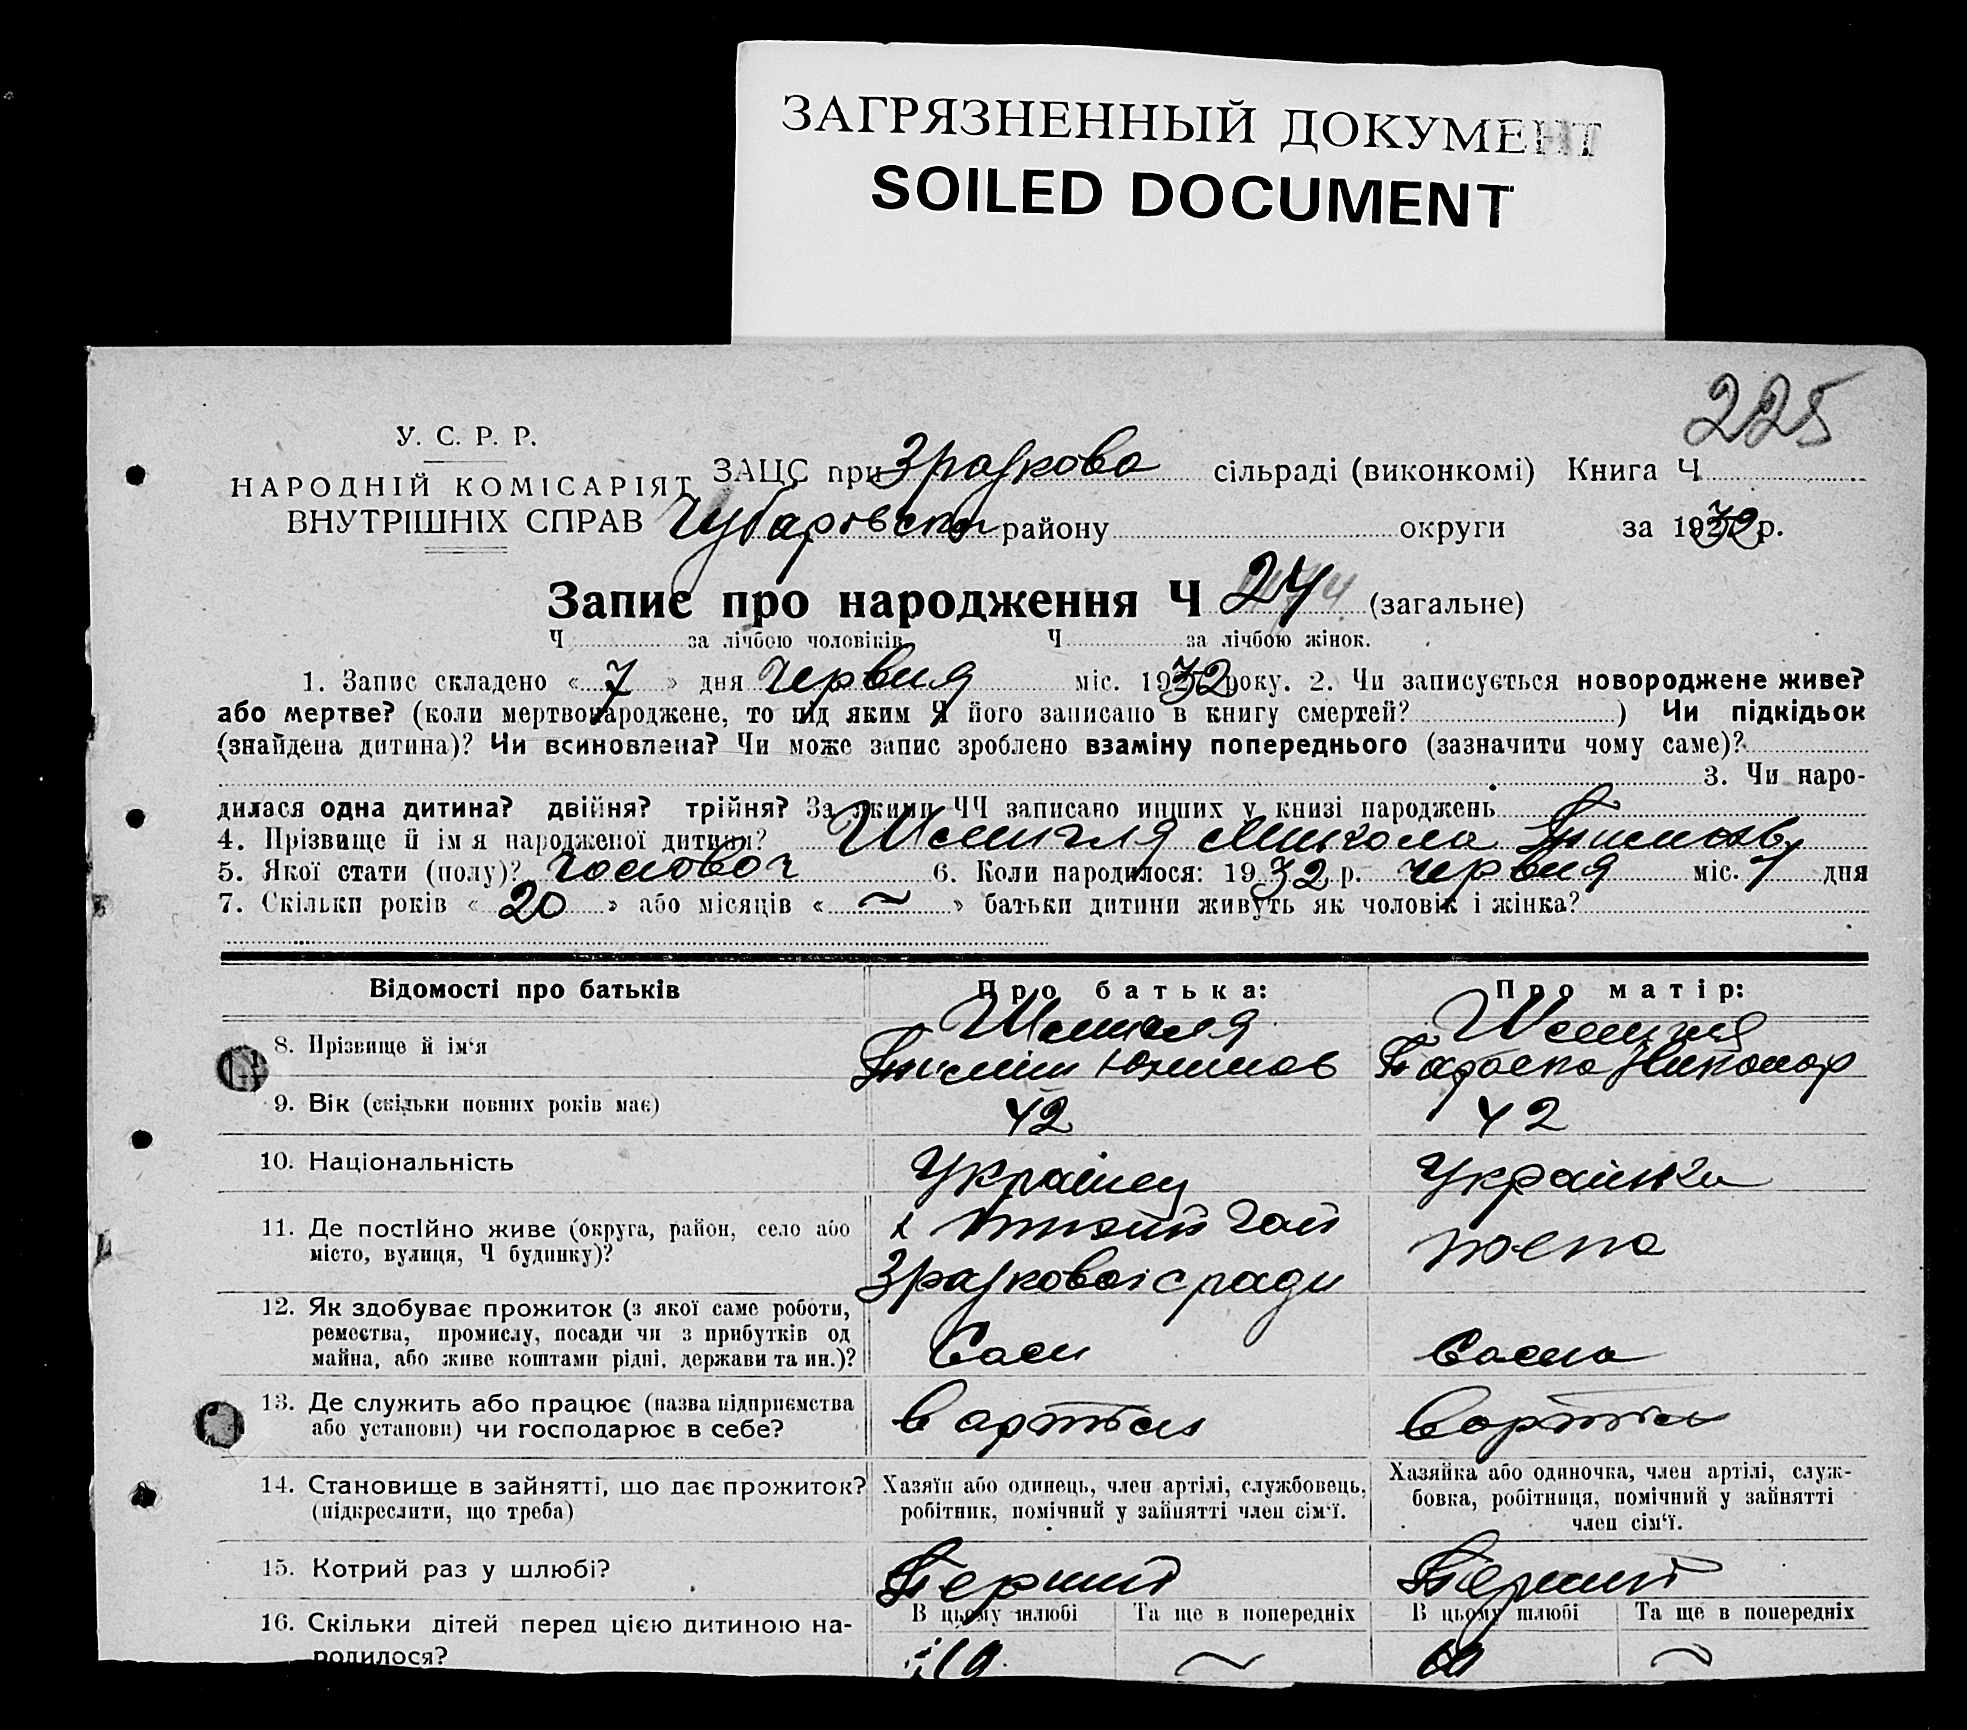 ЗАГРЯЗНЕННЫЙ ДОКУМЕНТ
SOILED DOCUMENT
225
У. С. Р. Р.
НАРОДНІЙ КОМІСАРІЯТ
ВНУТРІШНІХ СПРАВ
ЗАЦС при сільраді (виконкомі) Книга Ч
району округи за 1932 р.
Запис про народження Ч 24 (загальне)
Ч за лічбою чоловіків Ч за лічбою жінок.
1. Запис складено « 7 » дня червня міс. 1932 року. 2. Чи записується новороджене живе?
або мертве? (коли мертвонароджене, то під яким Ч його записано в книгу смертей? ) Чи підкідьок
(знайдена дитина)? Чи всиновлена? Чи може запис зроблено взаміну попереднього (зазначити чому саме)?
3. Чи наро-
дилася одна дитина? двійня? трійня? За якими ЧЧ записано инших у книзі народжень
4. Прізвище й ім я народженої дитини? Микола
5. Якої стати (полу)? чоловоч 6. Коли народилося: 1932 р. червня міс. 1 дня
7. Скільки років « 20 » або місяців « ~ » батьки дитини живуть як чоловік і жінка?
Відомості про батьків
Про батька:
Про матір:
8. Прізвище й ім'я
9. Вік (скільки повних років має)
42
42
10. Національність
Українец
Українка
11. Де постійно живе (округа, район, село або
місто, вулиця, Ч будинку)?
х Гай
ради
12. Як здобуває прожиток (з якої саме роботи,
ремества, промислу, посади чи з прибутків од
майна, або живе коштами рідні, держави та ин.)?
13. Де служить або працює (назва підприємства
або установи) чи господарює в себе?
в артіли
в артіли
14. Становище в зайнятті, що дає прожиток?
(підкреслити, що треба)
Хазяїн або одинець, член артілі, службовець,
робітник, помічний у зайнятті член сім'ї.
Хазяйка або одиночка, член артілі, служ-
бовка, робітниця, помічний у зайнятті
член сім'ї.
15. Котрий раз у шлюбі?
Перший
Перший
16. Скільки дітей перед цією дитиною на-
родилося?
В цьому шлюбі Та ще в попередніх
В цьому шлюбі Та ще в попередніх
~
~